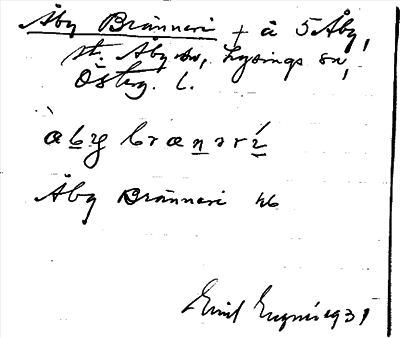 Åby Bränneri + å 5 Åby,
st. Åby sn, Lysings hd,
Österg. l.
åby brænəri
Åby Bränneri
Emil 1931